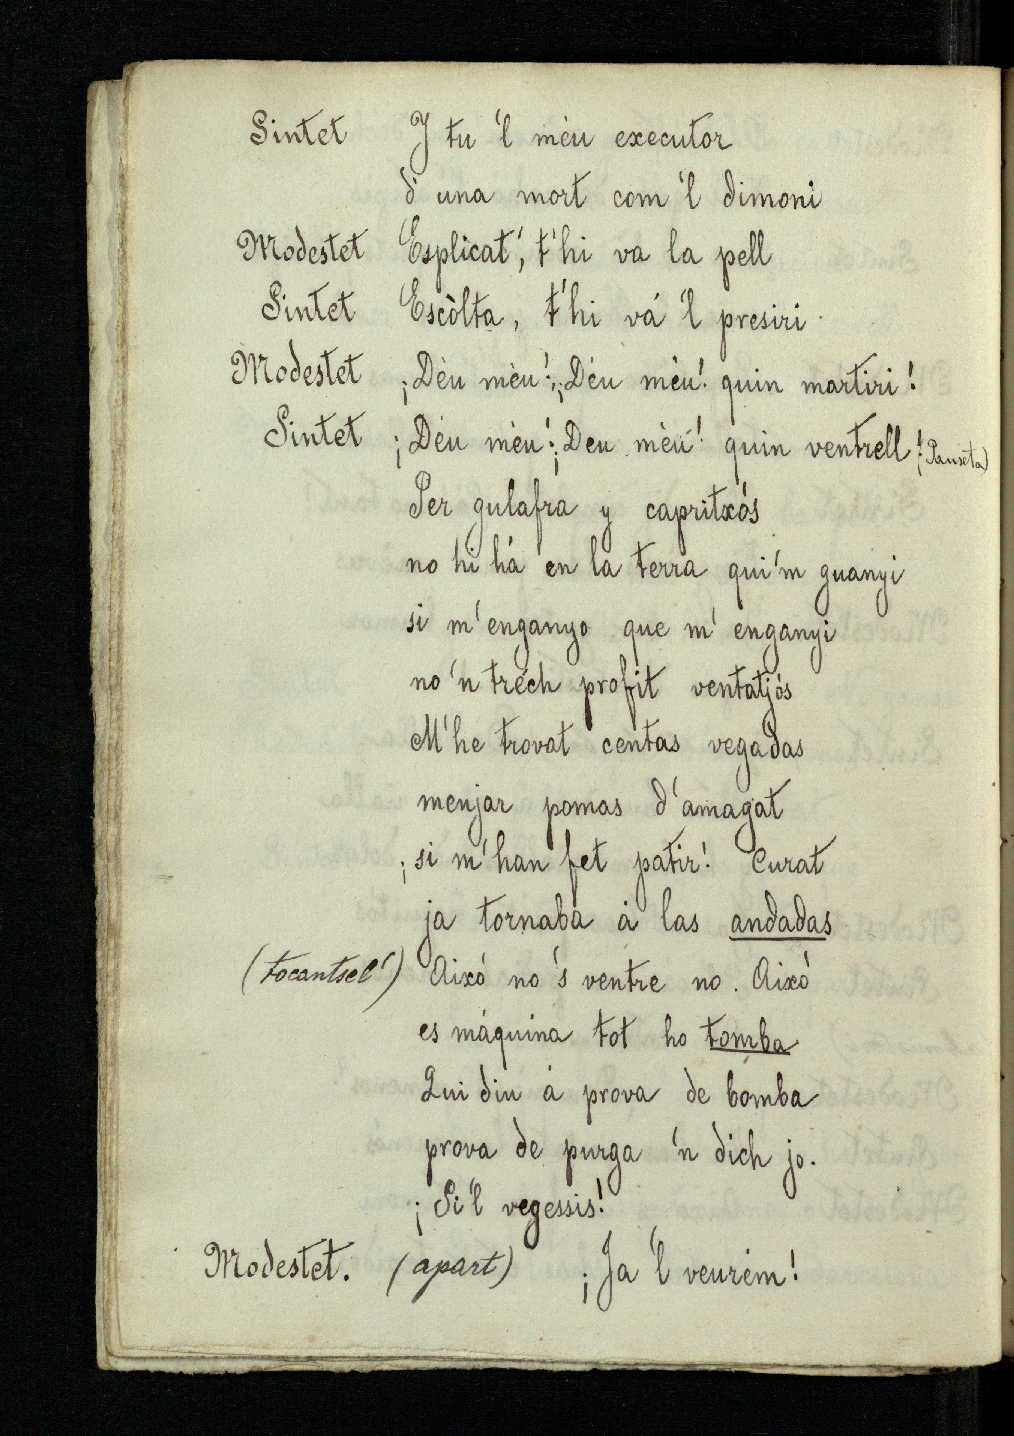 Sintet Y tu 'l mèu executor
d' una mort com 'l dimoni
Modestet Esplicat', t'hi va la pell
Sintet Escòlta, t'hi vá 'l presiri
Modestet ¡Dèu mèu! ¡Dèu mèu! quin martiri!
Sintet ¡Dèu mèu! ¡Deu mèu! quin ventrell! (Pauseta)
Per gulafra y capritxós
no hi há en la terra qui'm guanyi
si m'enganyo que m'enganyi
no 'n tréch profit ventatjós
M'he trovat centas vegadas
menjar pomas d'amagat
¡si m'han fet patir! Curat
ja tornaba á las andadas
(tocantsel') Aixó no 's ventre no. Aixó
es máquina tot ho tomba
Qui diu á prova de bomba
prova de purga 'n dich jo.
¡Si'l vegessis!
Modestet. (apart) ¡Ja 'l veurém!